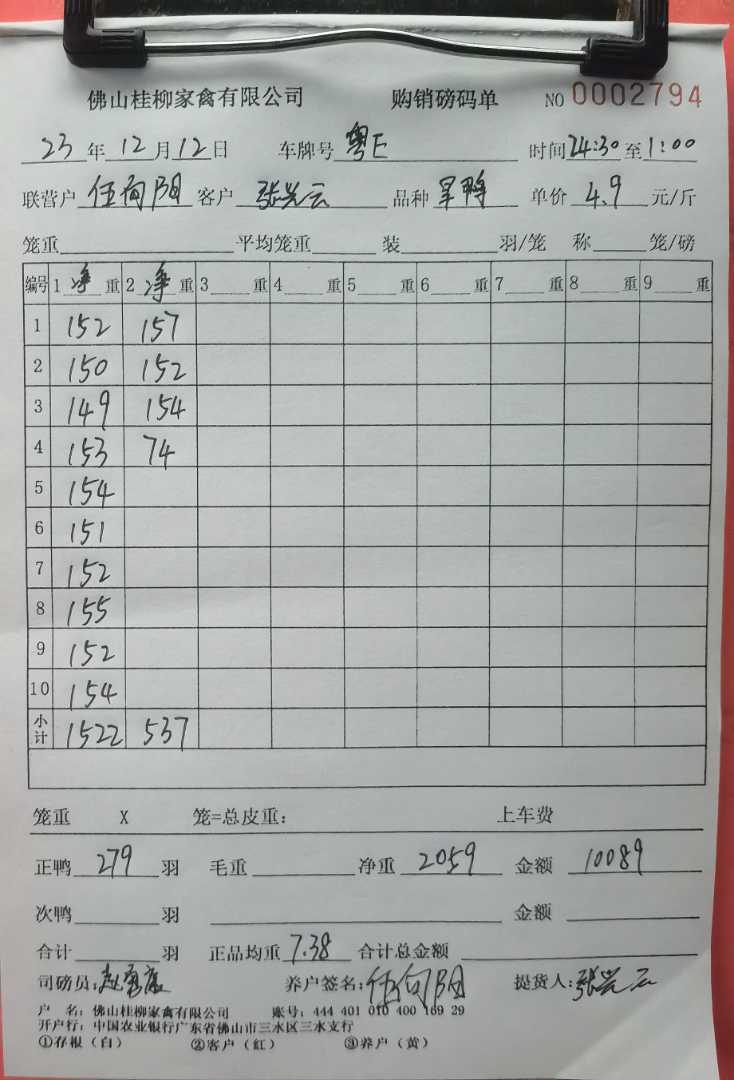 佛山桂柳家禽有限公司 购销磅码单 NO 0002794
23年12月12日 车牌号 粤E 时间24:30至1:00
联营户 任向阳 客户 张兴云 品种 旱鸭 单价 4.9 元/斤
笼重 平均笼重 装 羽/笼 称 笼/磅
编号 1 净 重 2 净 重 3 重 4 重 5 重 6 重 7 重 8 重 9 重
1 152 157
2 150 152
3 149 154
4 153 74
5 154
6 151
7 152
8 155
9 152
10 154
小计 1522 537
笼重 X 笼=总皮重: 上车费
正鸭 279 羽 毛重 净重 2059 金额 10089
次鸭 羽 金额
合计 羽 正品均重 7.38 合计总金额
司磅员: 养户签名: 任向阳 提货人: 张兴云
户 名: 佛山桂柳家禽有限公司 账号: 444 401 010 400 169 29
开户行: 中国农业银行广东省佛山市三水区三水支行
①存根(白) ②客户(红) ③养户(黄)